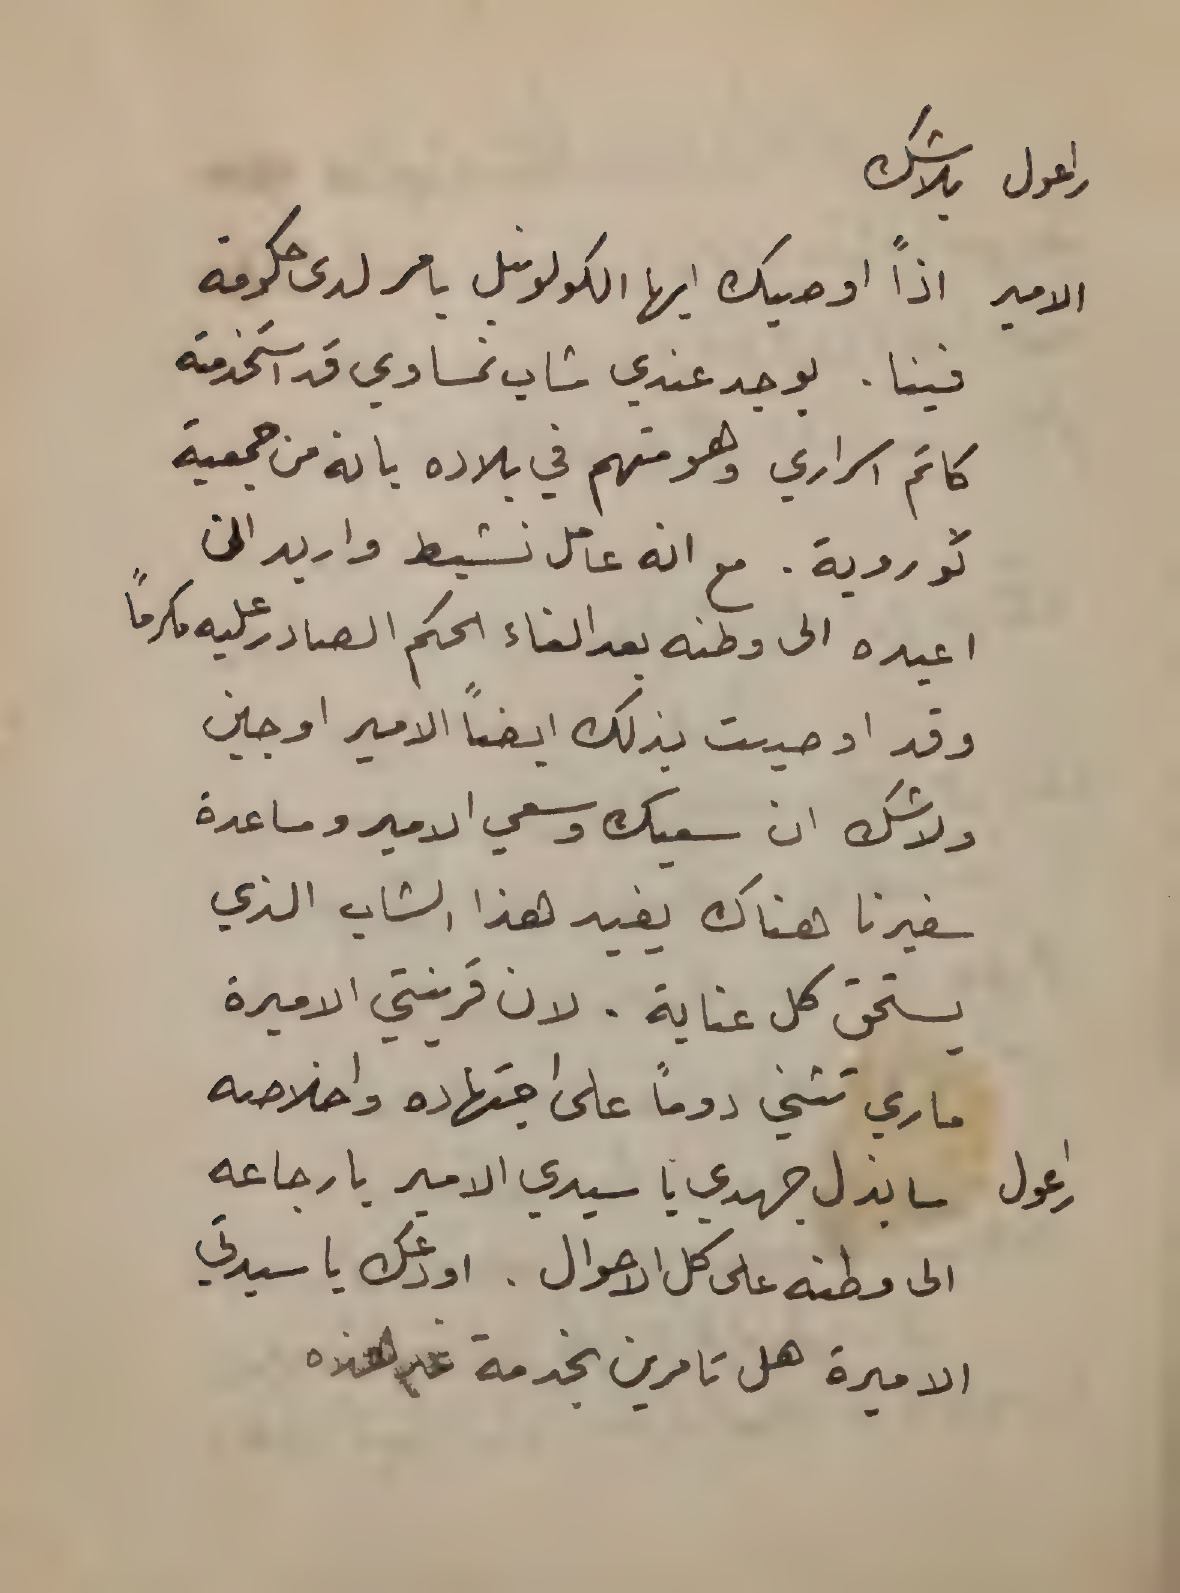 راعول بلاشك
الامير اذاً اوصيك ايها الكولونيل بامر لدى حكومة
فينا . يوجد عندي شاب نمساوي قد استخدمته
كاتم اسراري وهو متهم في بلاده بانه من جمعية
ثوروية . مع انه عامل نشيط واريد ان
اعيده الى وطنه بعد الغاء الحكم الصادر عليه مكرماً
وقد اوصيت بذلك ايضاً الامير اوجين
ولاشك ان سعيك وسعي الامير ومساعدة
سفيرنا هناك يفيد هذا الشاب الذي
يستحق كل عناية . لان قرينتي الاميرة
ماري تثني دوماً على اجتهاده واخلاصه
راعول سابذل جهدي يا سيدي الامير بارجاعه
الى وطنه على كل الاحوال . اودعك يا سيدتي
الاميرة هل تامرين بخدمة غير هذه